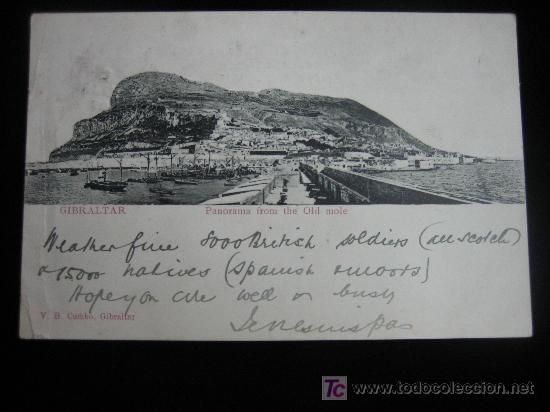 GIBRALTAR Panorama from the Old mole
Weather fine 8000 British soldiers (all scotch)
& 15000 natives (Spanish & moors)
Hope you are well & busy
V. B. Cumbo, Gibraltar
TC todocoleccion
www.todocoleccion.net